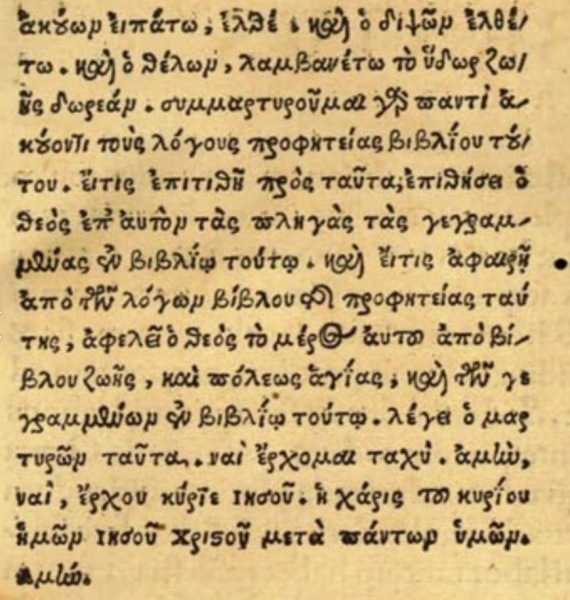 ἀκούων εἰπάτω, ἐλθέ, καὶ ὁ διψῶν ἐλθέ/
τω. καὶ ὁ θέλων, λαμβανέτω τὸ ὕδωρ ζω/
ῆς δωρεάν. συμμαρτυροῦμαι γὰρ παντὶ ἀ-
κούοντι τοὺς λόγους προφητείας βιβλίου τού/
του. εἴτις ἐπιτιθῇ πρὸς ταῦτα, ἐπιθήσει ὁ
θεὸς ἐπ' ἀυτὸν τὰς πληγὰς τὰς γεγραμ-
μένας ἐν βιβλίῳ τούτῳ. καὶ εἴτις ἀφαιρῇ
ἀπὸ τῶν λόγων βίβλου τῆς προφητείας ταύ
της, ἀφελεῖ ὁ θεὸς τὸ μέρος ἀυτοῦ ἀπὸ βί-
βλου ζωῆς, καὶ πόλεως ἁγίας, καὶ τῶν γε
γραμμένων ἐν βιβλίῳ τούτῳ. λέγει ὁ μαρ
τυρῶν ταῦτα. ναὶ ἔρχομαι ταχύ. ἀμὴν,
ναὶ, ἔρχου κύριε ιησοῦ. ἡ χάρις τοῦ κυρίου
ἡμῶν ιησοῦ χριστοῦ μετὰ πάντων ὑμῶν.
Αμήν.